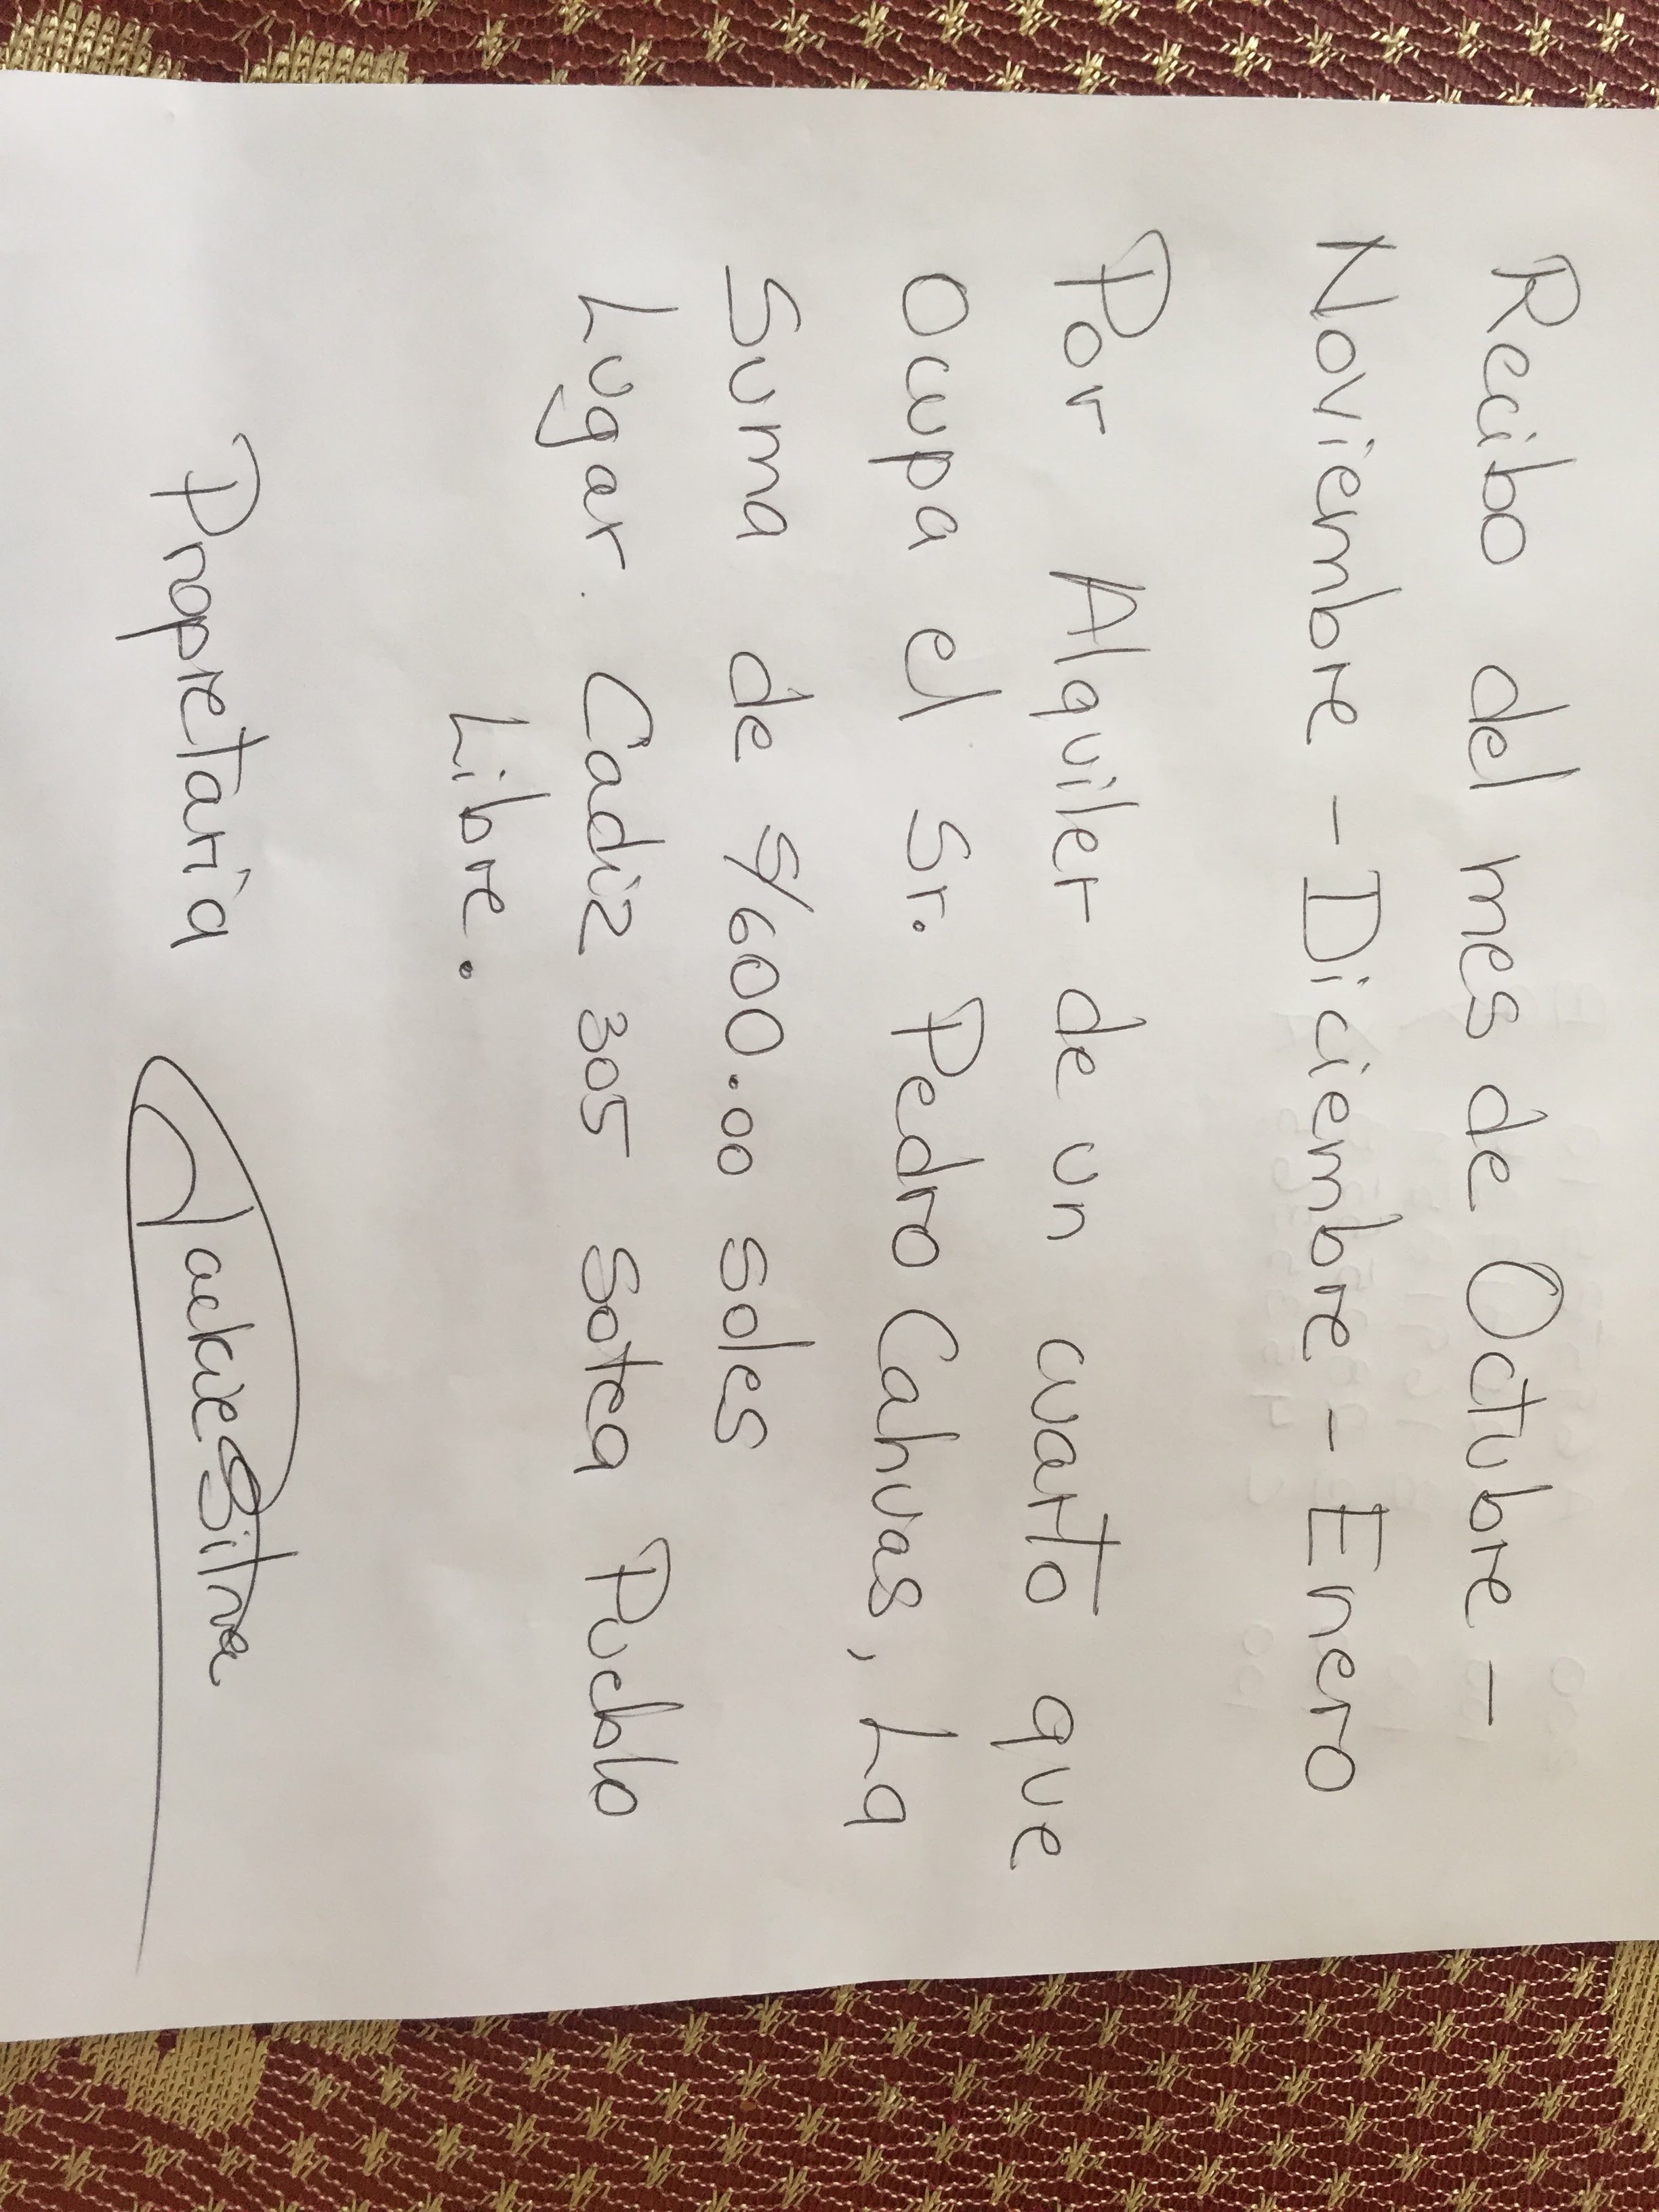 Recibo del mes de Octubre -
Noviembre - Diciembre - Enero
Por Alquiler de un cuarto que
Ocupa el Sr. Pedro Cahuas, La
Suma de S/600.00 soles
Lugar. Cadiz 305 Sotea Pueblo
Libre.
Propretaria Jackie Silva